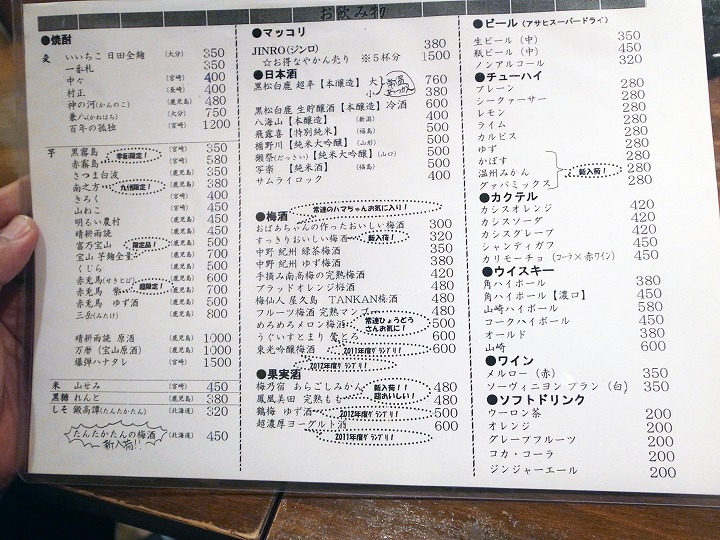 お飲み物
●焼酎
麦 いいちこ 日田全麹 (大分) 350
一番札 350
中々 (宮崎) 400
村正 (長崎) 400
神の河(かんのこ) (鹿児島) 480
兼八(かねはち) (大分) 750
百年の孤独 (宮崎) 1200
芋 黒霧島 (宮崎) 350
赤霧島 季節限定! (宮崎) 580
さつま白波 (鹿児島) 350
南之方 九州限定! (鹿児島) 380
きろく (宮崎) 400
山ねこ (宮崎) 450
明るい農村 (鹿児島) 450
晴耕雨読 (鹿児島) 450
富乃宝山 限定品! (鹿児島) 500
宝山 芋麹全量 (鹿児島) 700
くじら (鹿児島) 500
赤兎馬(せきとば) (鹿児島) 600
赤兎馬 紫 超限定! (鹿児島) 700
赤兎馬 ゆず酒 (鹿児島) 500
三岳(みたけ) (鹿児島) 800
晴耕雨読 原酒 (鹿児島) 1000
万暦(宝山原酒) (鹿児島) 1000
爆弾ハナタレ (鹿児島) 1500
米 山せみ (宮崎) 450
黒糖 れんと (鹿児島) 380
しそ 鍛高譚(たんたかたん) (北海道) 320
たんたかたんの梅酒 新入荷!! (北海道) 450
●マッコリ
JINRO(ジンロ) 380
☆お得なやかん売り ※5杯分 1500
●日本酒
黒松白鹿 超辛【本醸造】 大 760
小 380
黒松白鹿 生貯醸酒【本醸造】冷酒 600
八海山【本醸造】 (新潟) 400
飛露喜【特別純米】 (福島) 500
楯野川【純米大吟醸】 (山形) 500
獺祭(だっさい)【純米大吟醸】 (山口) 500
写楽 【純米酒】 (福島) 500
サムライロック 400
●梅酒
常連のハマちゃんお気に入り!
おばあちゃんの作ったおいしい梅酒 300
すっきりおいしい梅酒 新入荷! 320
中野 紀州 緑茶梅酒 350
中野 紀州 ゆず梅酒 350
手摘み南高梅の完熟梅酒 420
ブラッドオレンジ梅酒 480
梅仙人 屋久島 TANKAN梅酒 480
フルーツ梅酒 完熟マンゴー 480
めろめろメロン梅酒 常連ひょうどうさんお気に! 500
うぐいすとまり 鶯とろ 600
東光吟醸梅酒 2011年度グランプリ! 600
2012年度グランプリ!
●果実酒
梅乃宿 あらごしみかん 480
鳳凰美田 完熟もも 新入荷!!超おいしい! 480
鶴梅 ゆず酒 2012年度グランプリ! 500
超濃厚ヨーグルト酒 600
2011年度グランプリ!
●ビール (アサヒスーパードライ)
生ビール(中) 350
瓶ビール(中) 450
ノンアルコール 320
●チューハイ
プレーン 280
シークァーサー 280
レモン 280
ライム 280
カルピス 280
ゆず 280
かぼす 280
温州みかん 新入荷! 280
グァバミックス 280
●カクテル
カシスオレンジ 420
カシスソーダ 420
カシスグレープ 420
シャンディガフ 450
カリモーチョ (コーラ×赤ワイン) 450
●ウイスキー
角ハイボール 380
角ハイボール【濃口】 450
山崎ハイボール 580
コークハイボール 450
オールド 380
山崎 600
●ワイン
メルロー(赤) 350
ソーヴィニヨン ブラン(白) 350
●ソフトドリンク
ウーロン茶 200
オレンジ 200
グレープフルーツ 200
コカ・コーラ 200
ジンジャーエール 200